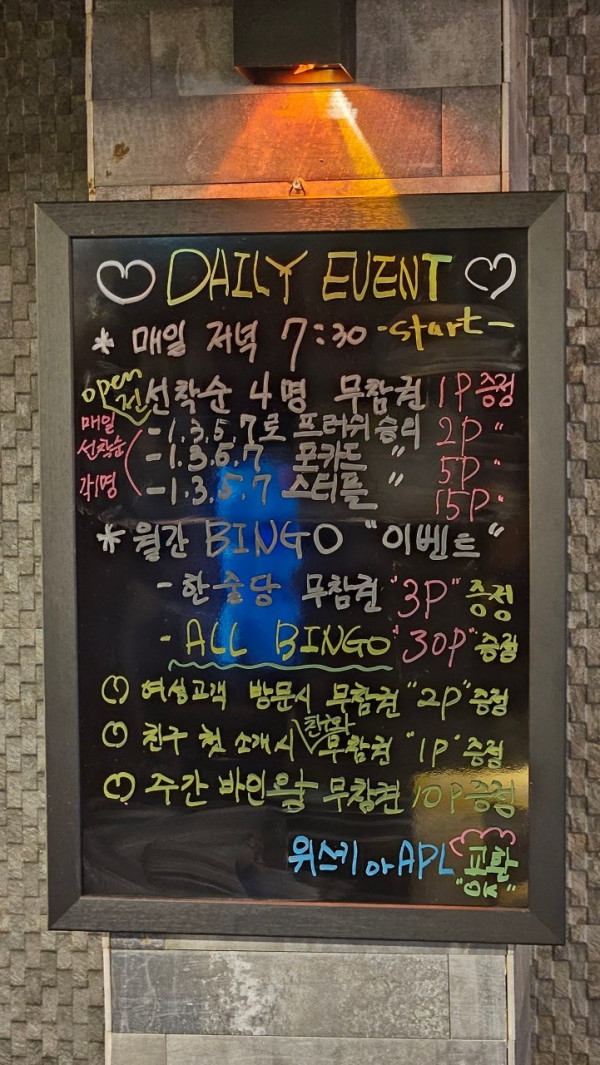 DAILY EVENT
* 매일 저녁 7:30 -start-
open전 선착순 4명 무참권 1P 증정
매일 선착순 각1명
-1.3.5.7로 플러쉬 승리 2P "
-1.3.5.7 포카드 " 5P "
-1.3.5.7 스티플 " 15P "
* 월간 BINGO "이벤트"
- 한줄당 무참권 "3P" 증정
- ALL BINGO "30P" 증정
여성고객 방문시 무참권 "2P" 증정
친구 첫 소개시 무참권 "1P" 증정
주간 바인왕 무참권 10P 증정
위스키 or APL 교환
"OK"